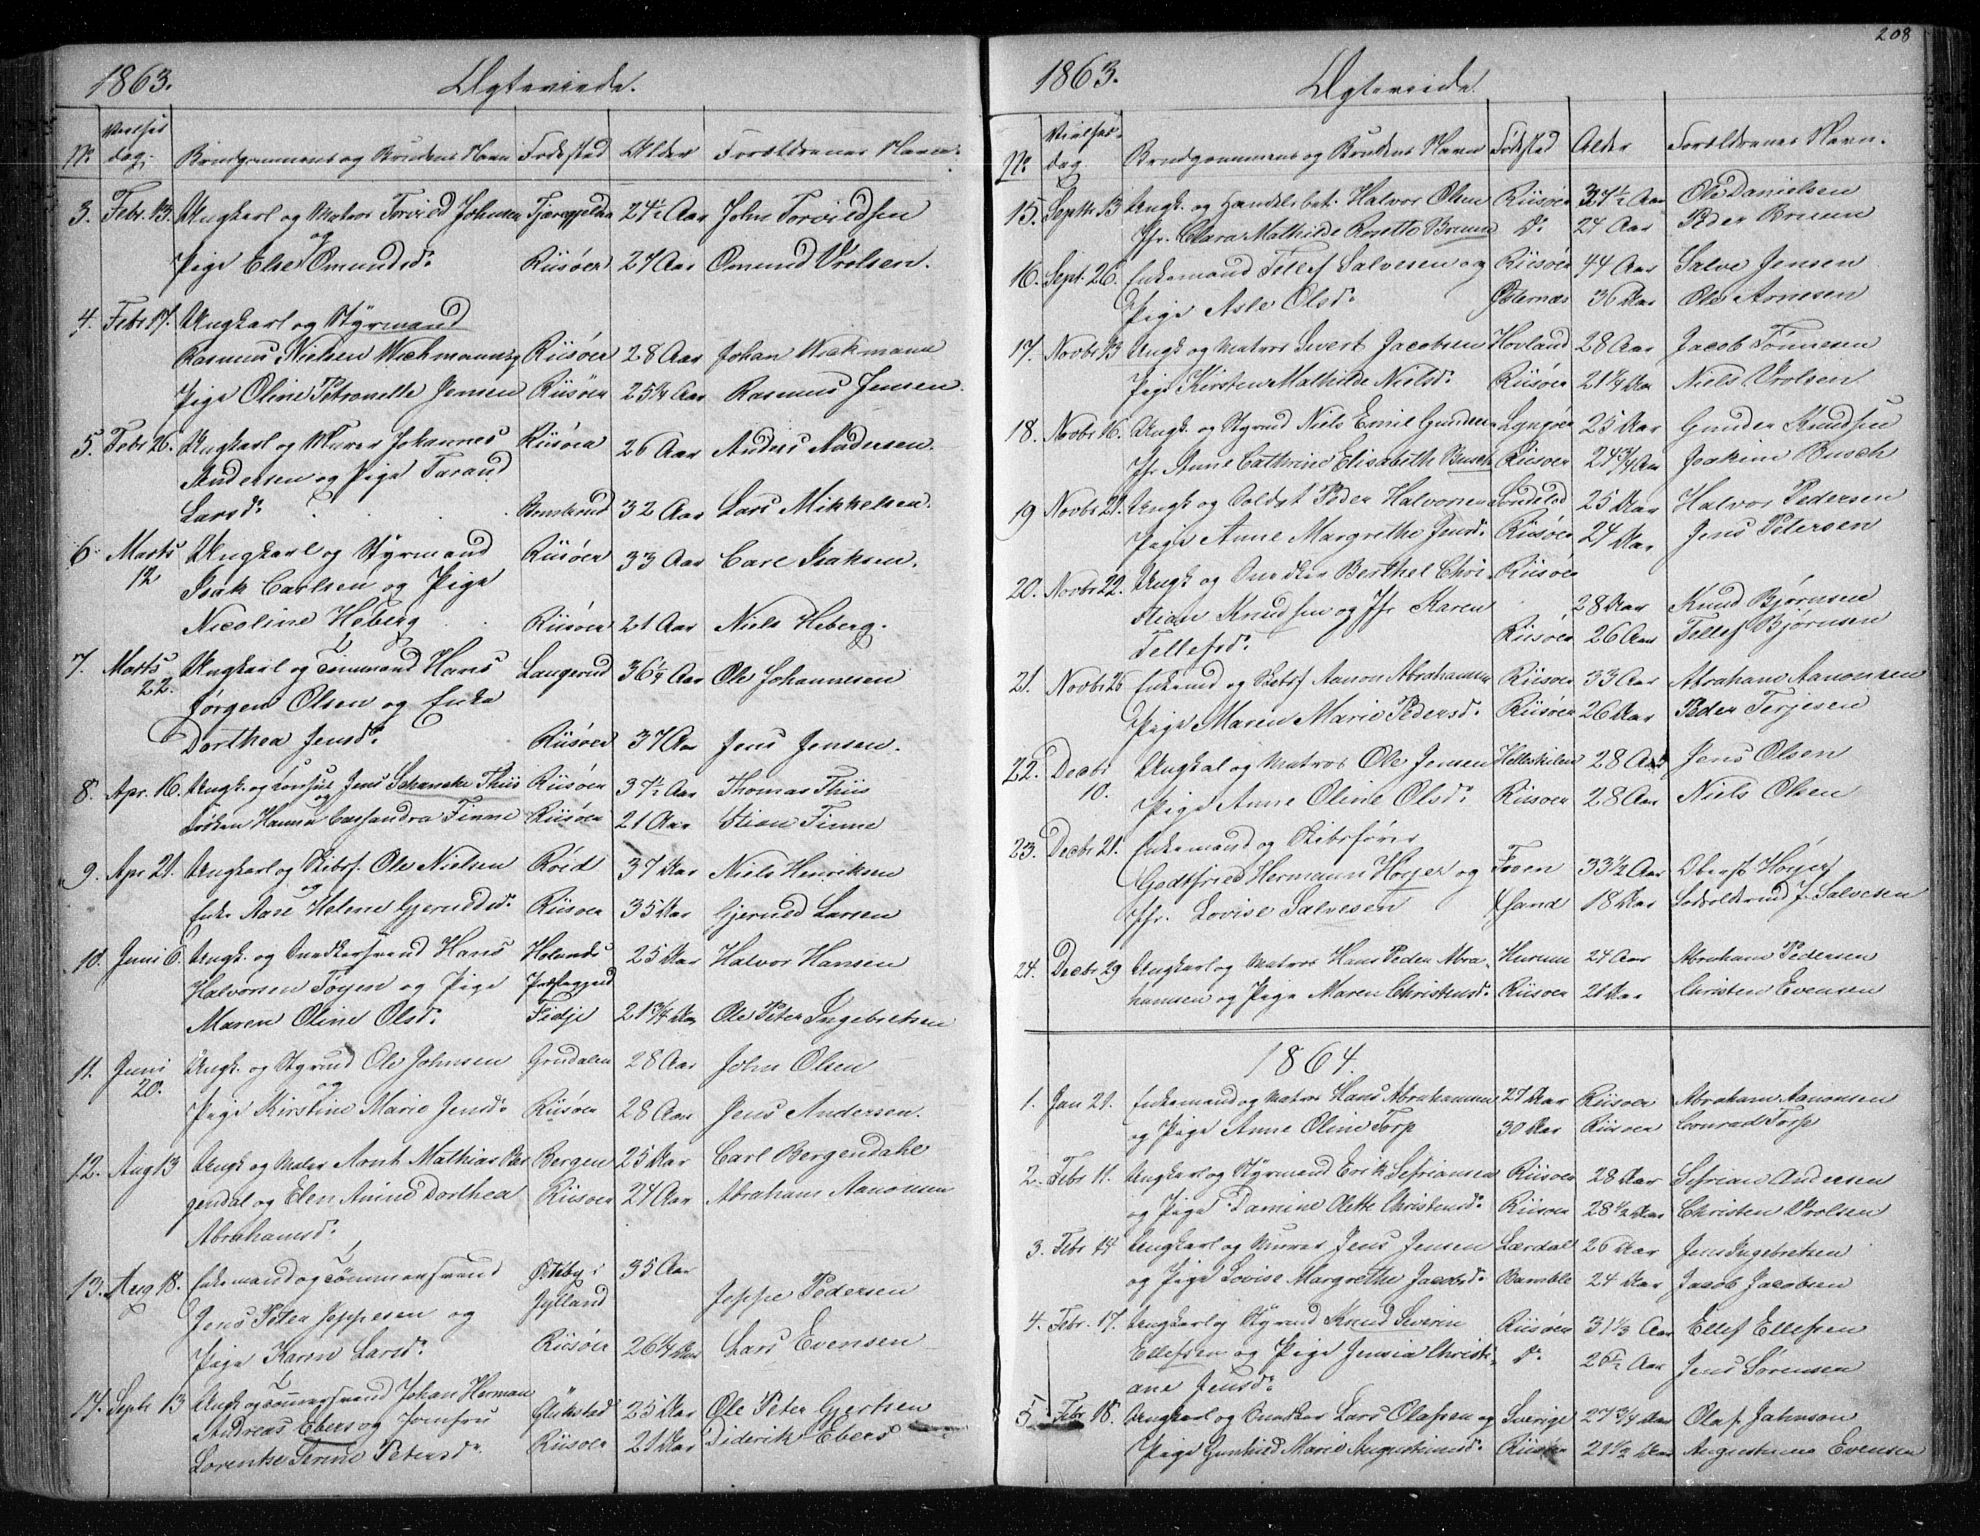 1863. Ægteviede.
No Vielses dag. Brudgommens og Brudens Navn Fødested Alder Forældrenes Navn.
3. Febr. 13. Ungkarl og Matros Torvild Johnsen 24½ Aar John Torvildsen
og
Pige Else Omundsd: Riisøer 27 Aar Omund Vrolsen.
4. Febr 17. Ungkarl og Styrmand
Rasmus Nielsen Wichmann og Riisøer 28 Aar Johan Wichmann
Pige Oline Petronelle Jensen Riisøer 25¼ Aar Rasmus Jensen.
5. Febr 26. Ungkarl og Murer Johannes Riisøer 26 Aar Anders Andersen.
Andersen og Pige Tarand
Larsd: 32 Aar Lars Mikkelsen.
6. Marts 12 Ungkarl og Styrmand Riisøer 33 Aar Carl Isaksen.
Isak Carlsen og Pige
Nicoline Heberg Riisøer 21 Aar Niels Heberg.
7. Marts 22. Ungkarl og Tømmermand Hans Langerud 36¼ Aar Ole Johannesen
Jørgen Olsen og Enke
Dorthea Jensd: Riisøer 37 Aar Jens Jensen.
8. Apr. 16. Ungk. og Consul Jens Schancke Thiis Riisøer 37½ Aar Thomas Thiis
og
Frøken Hanna Cassandra Finne Riisøer 21 Aar Stian Finne
9. Apr 21. Ungkarl og Skibsf. Ole Nielsen Røid 37 Aar Niels Henriksen
og
Enke Aase Helene Gjeruldsd: Riisøer 35 Aar Gjeruld Larsen
10. Juni 6. Ungk. og Snedkersvend Hans Holands 25 Aar Halvor Hansen
Halvorsen Tøyen og Pige Præstegjeld
Maren Oline Olsd: Fidje 21¾ Aar Ole Peter Ingebretsen
11. Juni 20. Ungk. og Styrmd Ole Johnsen Grudalen 28 Aar John Olsen
og
Pige Kirstine Marie Jensd: Riisøer 28 Aar Jens Andersen.
12. Aug 13 Ungk og Maler Arnt Mathias Ber Bergen 25 Aar Carl Bergendahl
gendal og Elen Amine Dorthea Riisøer 24 Aar Abraham Aanonsen
Abrahamsd:
13. Aug 18. Enkemand og Tømmersvend i 35 Aar
Jens Peter Jeppesen og Jylland Jeppe Pedersen
Pige Karen Larsd: Riisøer 26¼ Aar Lars Evensen
14. Septr 13 Ungk og Tømmersvend Johan Herman Glükstad 25 Aar Ole Peter Gjertsen
Andreas Ebers og Jomfru
Lorentse Serine Petersd. Riisøer 21 Aar Diderik Ebers
208
1863. Ægteviede
No Vielses- dag Brudgommens og Brudens Navn Fødested Alder Forældrenes Navn.
15. Septbr 13 Ungk. og Handelsbet. Halvor Olsen Riisøer 34½ Aar Ole Danielsen
Jfr. Clara Mathilde Rosette Bruun Do 24 Aar Peder Bruun
16. Sept. 26. Enkemand Tellef Salvesen og Riisøer 44 Aar Salve Jensen
Pige Asle Olsd: Østernæs 36 Aar Ole Arnesen
17. Novbr 13 Ungk og Matros Sivert Jacobsen Hovland 28 Aar Jacob Tønnesen
Pige Kirsten Mathilde Nielsd: Riisøer 21¼ Aar Niels Vrolsen
18. Novbr 16. Ungk. og Styrmd Niels Emil Gundersen Lyngør 25 Aar Gunder Knudsen
Jfr. Anne Cathrine Elisabeth Busch Riisøer 24¾ Aar Joakim Busch
19 Novbr 21. Ungk og Soldat Peder Halvorsen Søndeled 25 Aar Halvor Pedersen
Pige Anne Margrethe Jensd: Riisøer 24 Aar Jens Petersen
20. Novbr 22. Ungk og Snedker Berthel Chri- Riisøer
stian Knudsen og Jfr Karen 28 Aar Knud Bjørnsen
Tellefsd: Riisøer 26 Aar Tellef Bjørnsen
21. Novbr 26 Enkemd og Skibsf Aanon Abrahamsen Riisøer 33 Aar Abraham Aanonsen
Pige Maren Marie Pedersd: Riisøer 26 Aar Peder Terjesen
22. Decbr 10. Ungkal og Matros Ole Jensen Helleskilen 28 Aar Jens Olsen
Pige Anne Oline Olsd: Riisøer 28 Aar Niels Olsen
23. Decbr 21. Enkemand og Skibsfører
Godtfried Hermann Høyer og Foven 33½ Aar Oberst Høyer
Jfr. Lovise Salvesen Xsand 18 Aar J. Salvesen
24. Decbr 29 Ungkarl og Matros Hans Peder Abra- Hurum 24 Aar Abraham Pedersen
hamsen og Pige Maren Christensd: Riisøer 21 Aar Christen Evensen
1864.
1. Jan 21. Enkemand og Matros Hans Abrahamsen 27 Aar Riisøer Abraham Aanonsen
og Pige Anne Oline Torp 30 Aar Riisøer Conrad Torp
2. Febr 11. Ungkarl og Styrmand Erik Sefriansen Riisøer 28 Aar Sefrian Andersen
og Pige Damine Olette Christensd: Riisøer 28½ Aar Christen Vrolsen
3. Febr 14 Ungkarl og Murer Jens Jensen Lærdal 26 Aar Jens Ingebretsen
og Pige Lovise Margrethe Jacobsd: Bamble 24 Aar Jacob Jacobsen
4. Febr. 17. Ungkarl og Styrmd Knud Severin Riisøer 31⅓ Aar Ellef Ellefsen
Ellefsen og Pige Jensia Christi- Do 26½ Aar Jens Sørensen
ane Jensd:
5. Febr 18. Ungkarl og Snedker Lars Olafsen og Sverige 27¾ Aar Olaf Jahnson
Pige Gunhild Marie Augustinusd: Riisøer 21½ Aar Augustinus Evensen